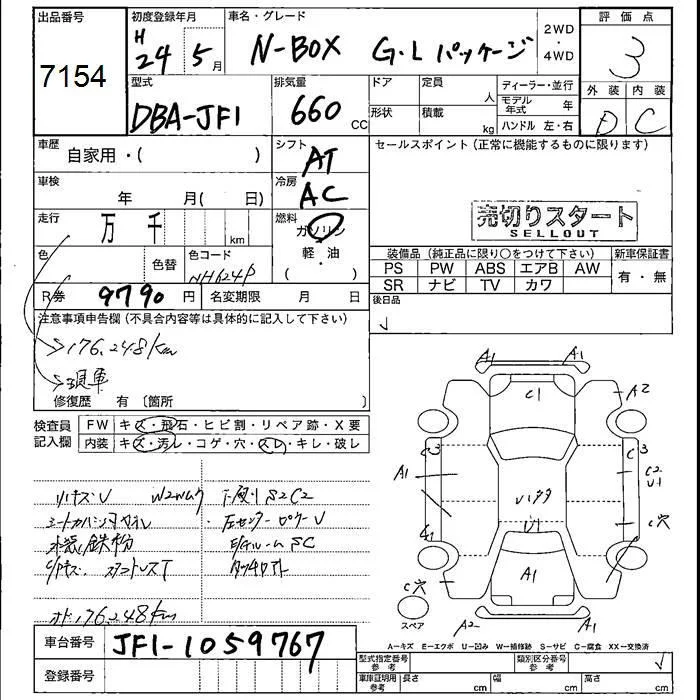 出品番号
7154
初度登録年月
H 24 5 月
車名・グレード
N-BOX G・Lパッケージ
2WD
・
4WD
評価点
3
型式
DBA-JF1
排気量
660 CC
ドア
定員
人
形状
積載
kg
ディーラー・並行
モデル年式 年
ハンドル 左・右
外装 内装
D C
車歴
自家用・( )
シフト
AT
セールスポイント(正常に機能するものに限ります)
車検
年 月( 日)
冷房
AC
走行
万 千 km
燃料
ガソリン
軽・油
( )
売切りスタート
SELLOUT
色
色替
色コード
NH624P
装備品(純正品に限り○をつけて下さい)
新車保証書
PS PW ABS エアB AW
SR ナビ TV カワ
有・無
R券 9790 円
名変期限 月 日
後日品
注意事項申告欄(不具合内容等は具体的に記入して下さい)
176,248km
修復歴 有〔箇所 〕
検査員
記入欄
FW キズ・飛石・ヒビ割・リペア跡・X要
内装 キズ・汚レ・コゲ・穴・スレ・キレ・破レ
下廻りS2C2
鉄粉
176248km
A1 A1
C1
A2
C3 C3
A1
C2
U1
U1
C穴
A1
C穴
スペア
A2 A1
A=キズ E=エクボ U=凹み W=補修跡 S=サビ C=腐食 XX=交換済
車台番号
JF1-1059767
登録番号
型式指定番号
参考
類別区分番号
参考
車庫証明用
参考
長さ cm
幅 cm
高さ cm